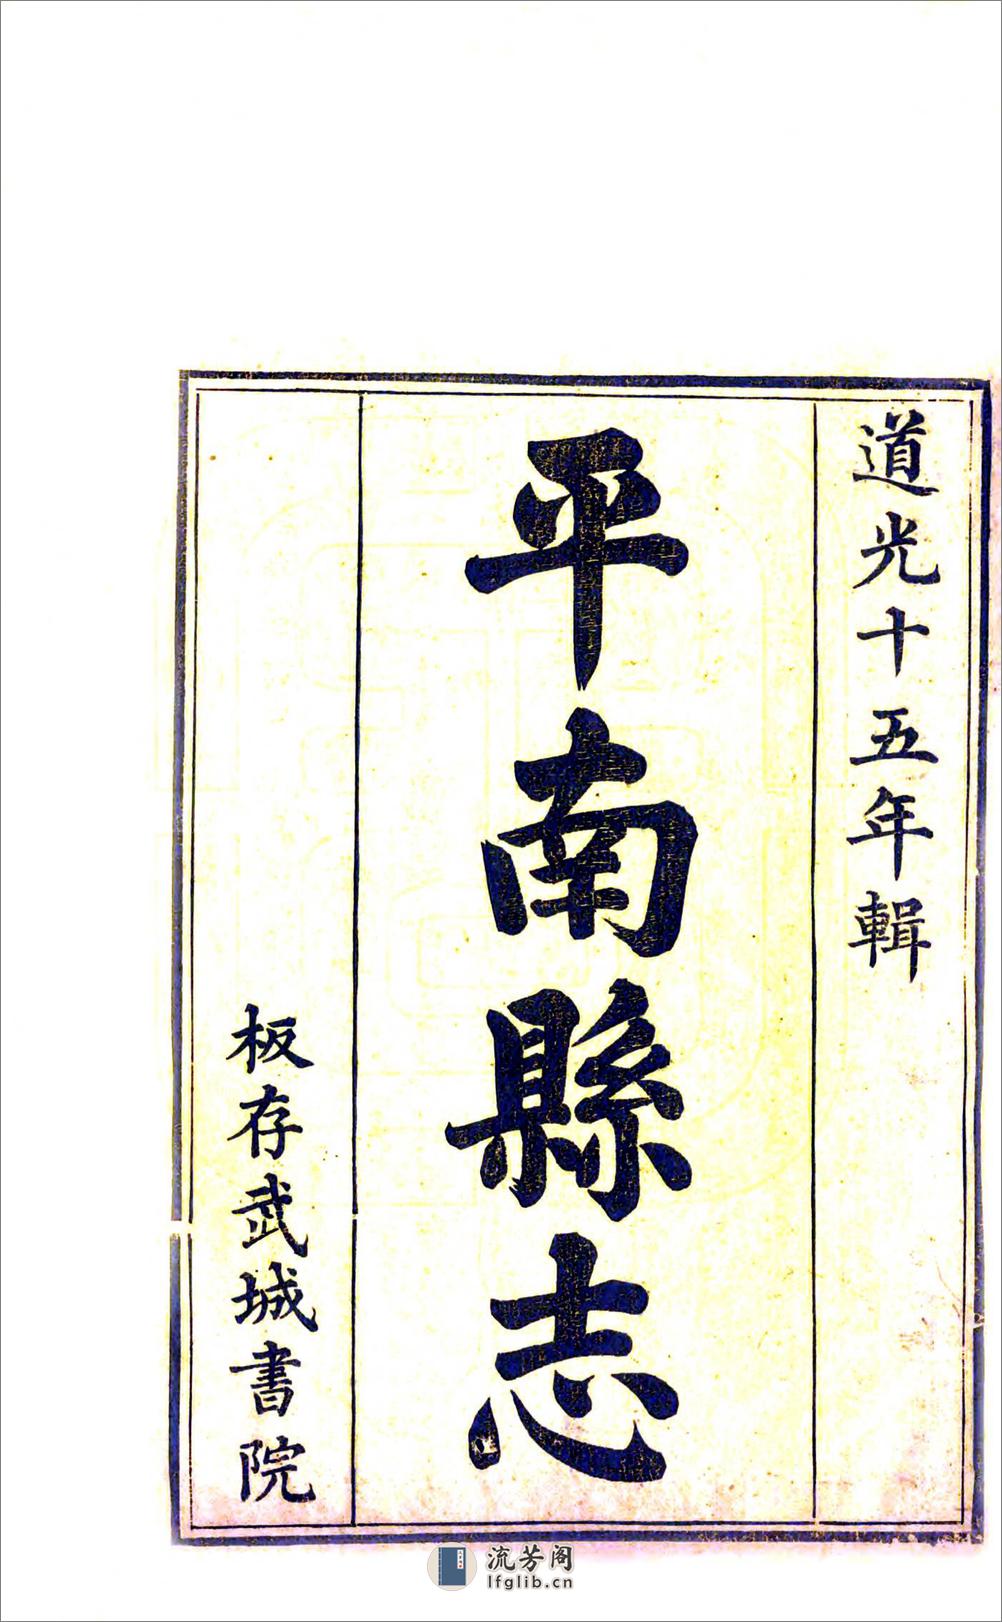 道光十五年輯
平南縣志
板存武城書院
流芳阁
lfglib.cn